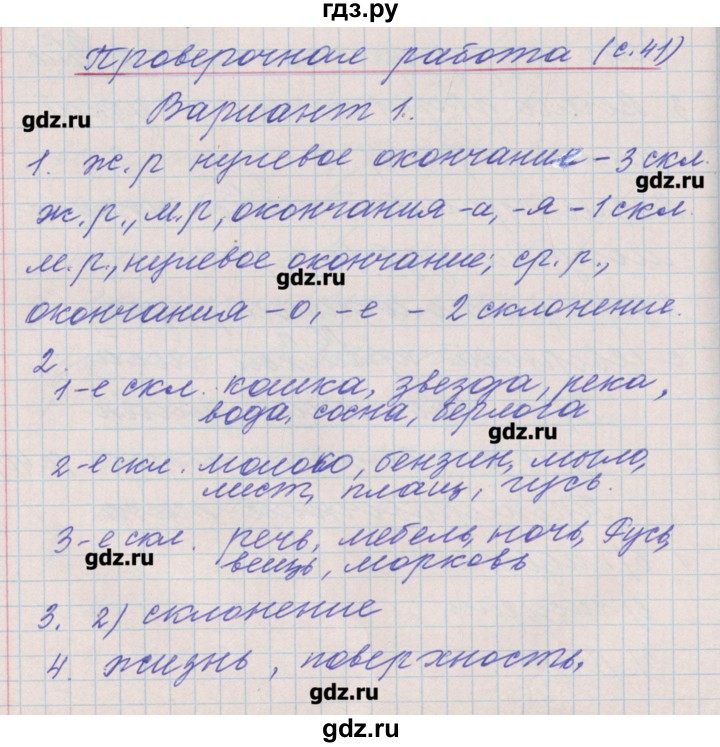 гдз.ру
Проверочная работа (с.41)
gdz.ru Вариант 1.
1. ж.р нулевое окончание - 3 скл.
gdz.ru
ж.р., м.р, окончания -а, -я - 1 скл.
м.р., нулевое окончание; ср.р.,
gdz.ru
окончания -о, -е - 2 склонение.
2.
1-е скл. кошка, звезда, река,
вода, сосна, берлога
gdz.ru
2-е скл. молоко, бензин, мыло,
лист, плащ, гусь.
3-е скл. речь, мебель, ночь, Русь,
gdz.ru вещь, морковь
3. 2) склонение
4. жизнь, поверхность,
gdz.ru
gdz.ru